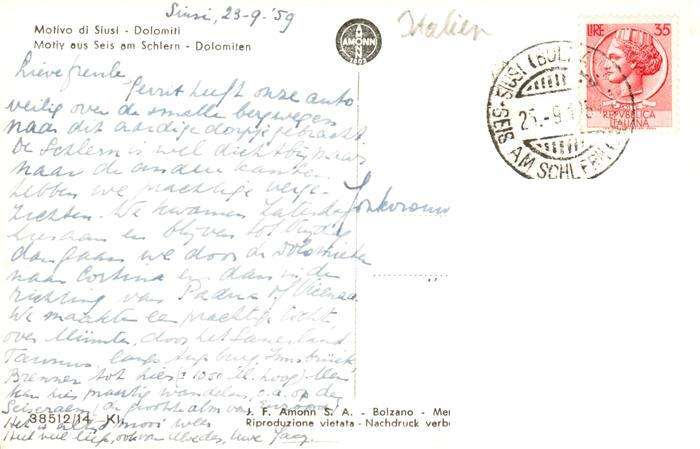 Siusi, 23-9-'59
Motivo di Siusi - Dolomiti
Motiv aus Seis am Schlern - Dolomiten
AMONN
Italien
LIRE 35
REPVBBLICA
ITALIANA
SIUSI (BOLZ
25.-9.
SEIS AM SCHLERN
Lieve freule
Gerrit heeft onze auto
veilig over de smalle bergwegen
naar dit aardige dorpje gebracht
De Schlern is wel dichtbij, maar
naar de andere kanten
hebben we prachtige verge-
zichten. We kwamen Zaterdag
hier aan en blijven tot
dan gaan we door de Dolomieten
naar Cortina en dan in de
richting van Padua of Vicenza
We maakten een prachtige tocht
over Münster, door het Sauerland
Taunus, langs Augsburg, Innsbrück
Brenner tot hier (± 1050 M. hoog) Men
kan hier prachtig wandelen, o.a. op de
Seiseralm, de grootste alm van Europa
Het is alles mooi weer
Heel veel liefs, ook van uwe
38512/14 Kl.
J. F. Amonn S. A. - Bolzano - Mer
Riproduzione vietata - Nachdruck verb